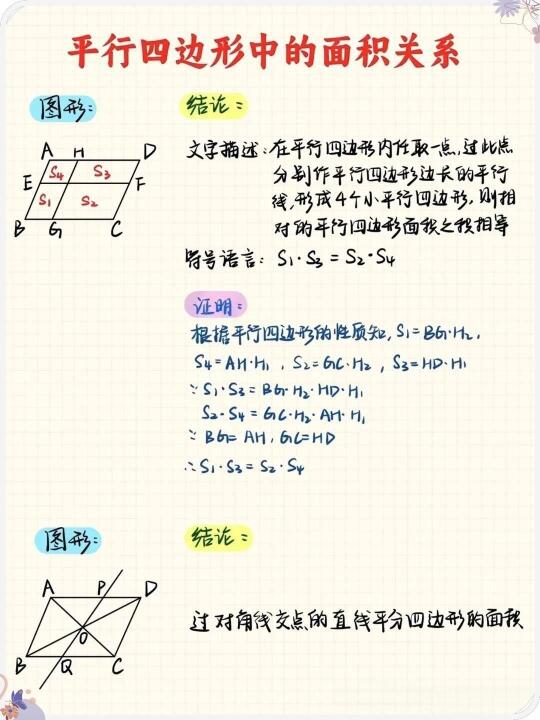 平行四边形中的面积关系
图形:
结论:
A H D
S4 S3
E F
S1 S2
B G C
文字描述:在平行四边形内任取一点,过此点
分别作平行四边形边长的平行
线,形成4个小平行四边形,则相
对的平行四边形面积之积相等
符号语言: S₁·S₃=S₂·S₄
证明:
根据平行四边形的性质知, S₁=BG·H₂,
S₄=AH·H₁, S₂=GC·H₂, S₃=HD·H₁
∵S₁·S₃=BG·H₂·HD·H₁
S₂·S₄=GC·H₂·AH·H₁
∵BG=AH, GC=HD
∴S₁·S₃=S₂·S₄
图形:
结论:
A P D
O
B Q C
过对角线交点的直线平分四边形的面积